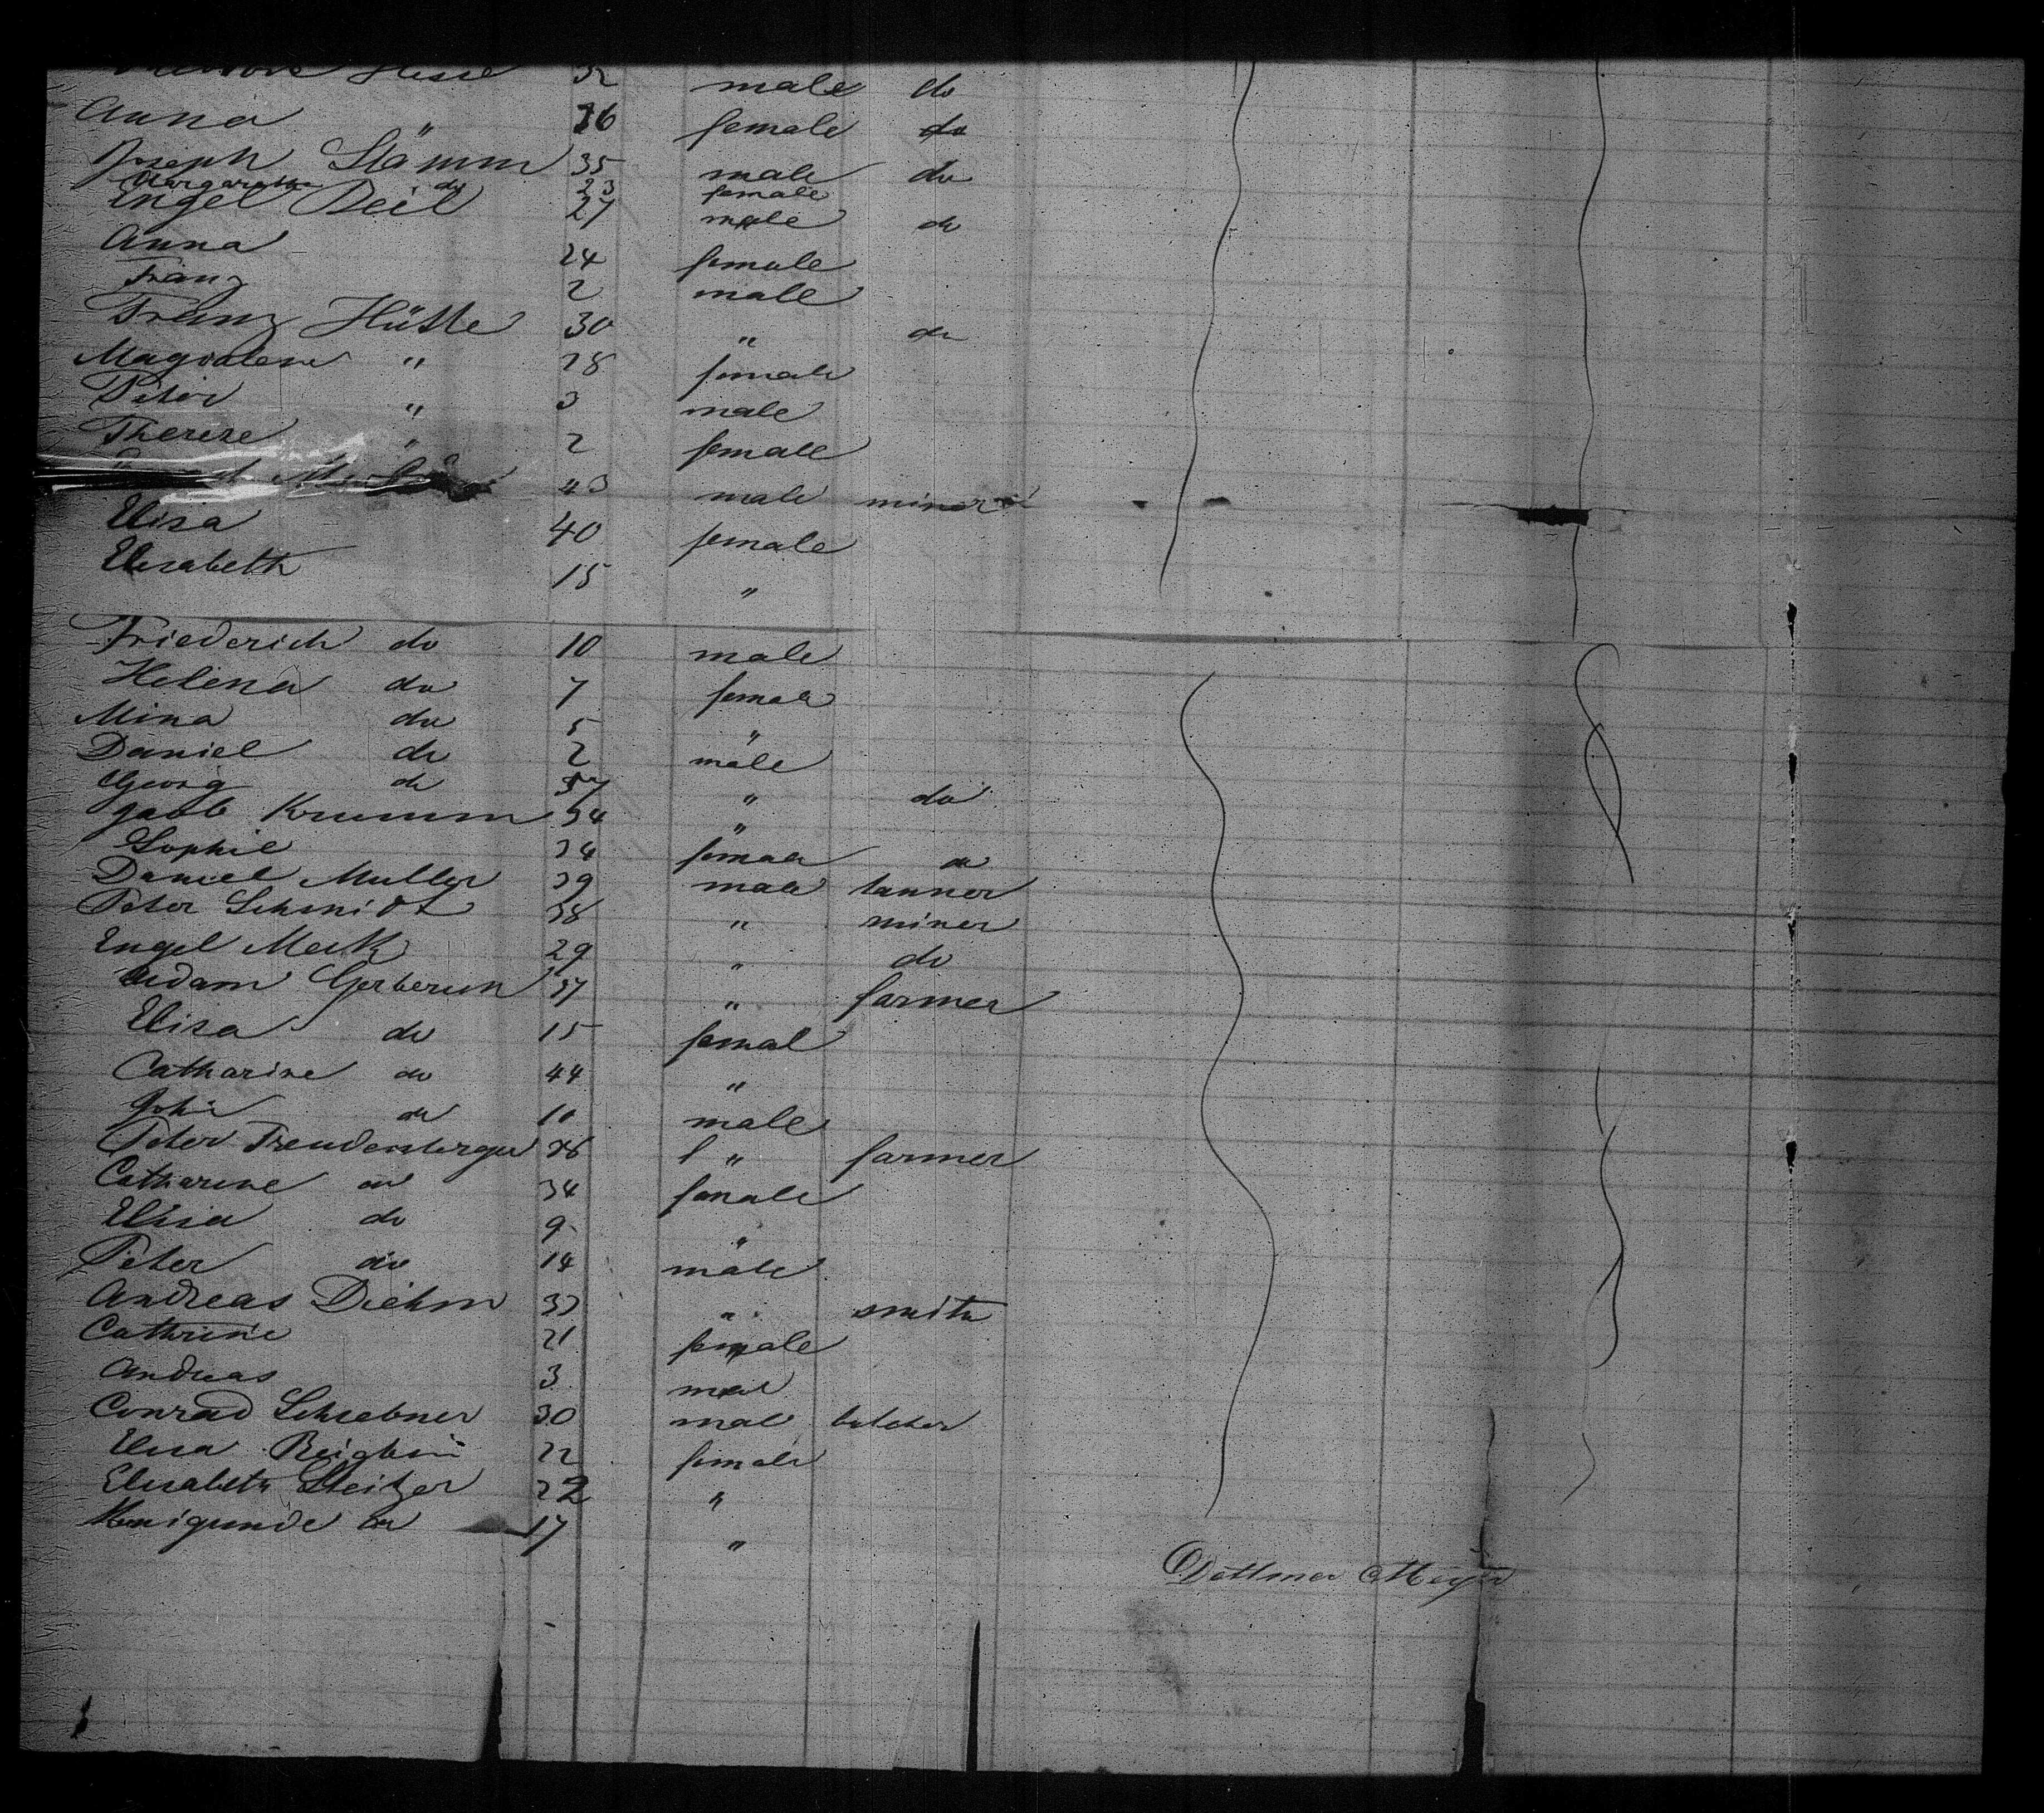 Hesse 32 male do
Anna 36 female do
Joseph Stämm 35 male do
Margaretha do 23 female
Engel Beil 27 male do
Anna 24 female
Franz 2 male
Franz Hütte 30 " do
Magdalena " 28 female
Peter " 3 male
Therese " 2 female
43 male miner
Elisa 40 female
Elisabeth 15 "
Friederich do 10 male
Helena do 7 female
Mina do 5 "
Daniel do 2 male
Georg do 37 " do
Jacob Krumm 34 "
Sophie 34 female do
Daniel Muller 39 male tanner
Peter Schmidt 38 " miner
Engel Meck 29 " do
Adam 37 " farmer
Elisa do 15 femal
Catharine do 44 "
John do 10 male
Peter Freudenberger 38 " farmer
Catharine do 34 female
Elisa do 9 "
Peter do 14 male
Andreas Diehm 33 " smith
Cathrine 21 female
Andreas 3 mal
Conrad Schrebner 30 male butcher
Elisa 22 female
Elisabeth Steitzer 22 "
Kunigunde do 17 "
Dettmer Meyer